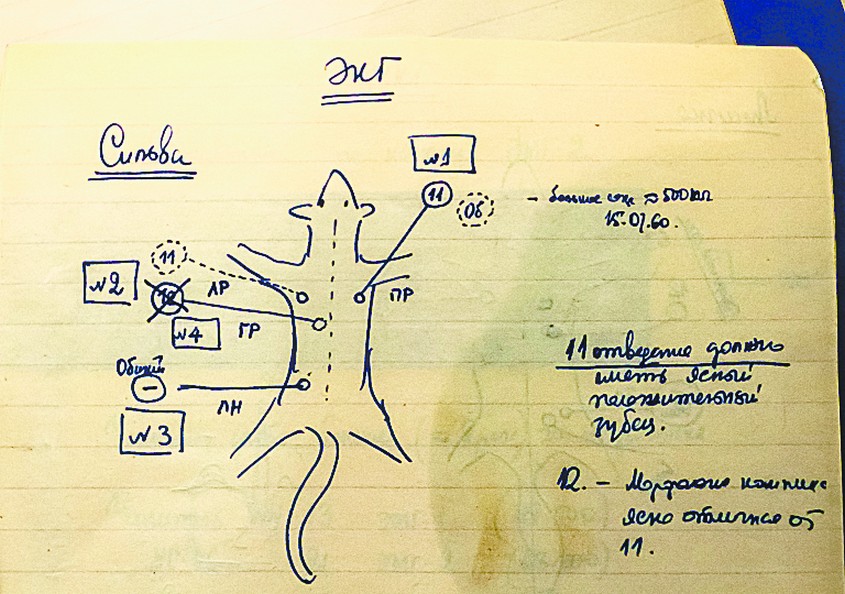 ЭКГ
Сильва
№1
11
Об
≈ 500
15.07.60.
11
№2
ЛР
ПР
№4
ГР
Общий
–
ЛН
№3
11 отведение должно
иметь ясный
положительный
зубец.
12. – Морфология комплекса
ясно отличная от
11.